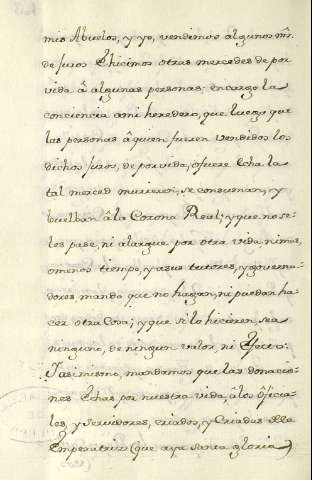 mis Abuelos, y yo, vendimos algunos mrs.
de juros Ehicimos otras mercedes de por
vida â algunas personas; encargo la
conciencia ami heredero, que luego que
las personas âquien fueren vendidos los
dichos juros, de por vida, ofuere Echa la
tal merced murieren, se consuman, y
buelban âla Corona Real; y que no se
les pase, ni alargue por otra vida, nimas,
omenos tiempo, y asus tutores, y governa
dores mando que no hagan, ni puedan ha
cer otra Cosa; y que si lo hicieren, sea
ninguno, de ningun valor, ni Efecto:
Yasimismo, mandamos que las donacio
nes Echas por nuestra vida, âlos Oficia
les, y Servidores, criados, y Criadas dela
Emperatriz (que aya santa gloria)